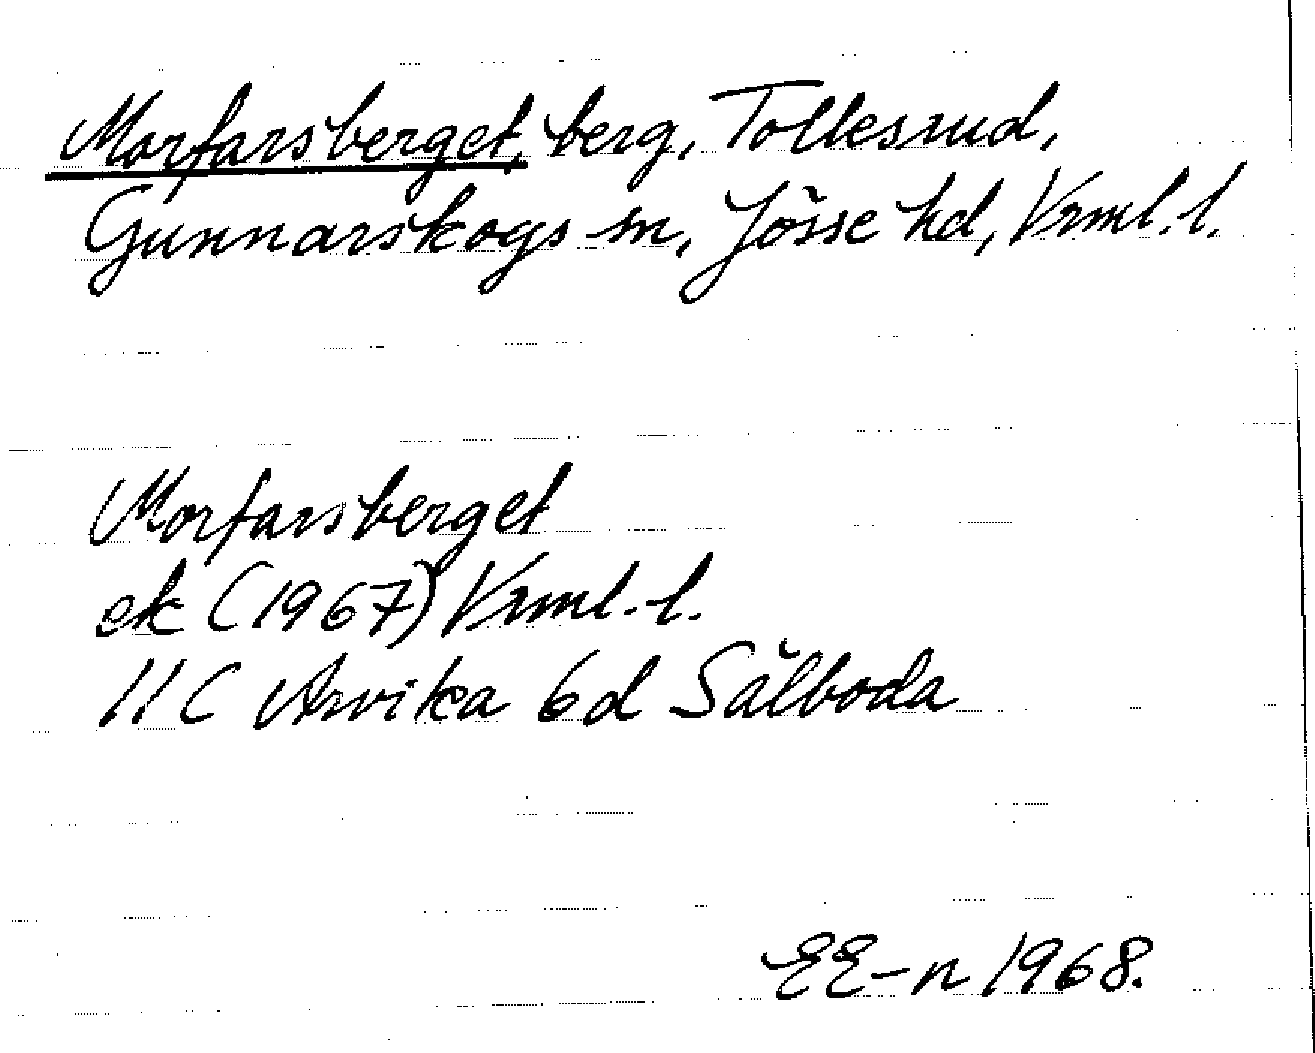 Morfarsberget, berg, Tollesrud,
Gunnarskogs sn, Jösse hd, Vrml. l.
Morfarsberget
ek (1967) Vrml. l.
11C Arvika 6d Sälboda
EE-n 1968.